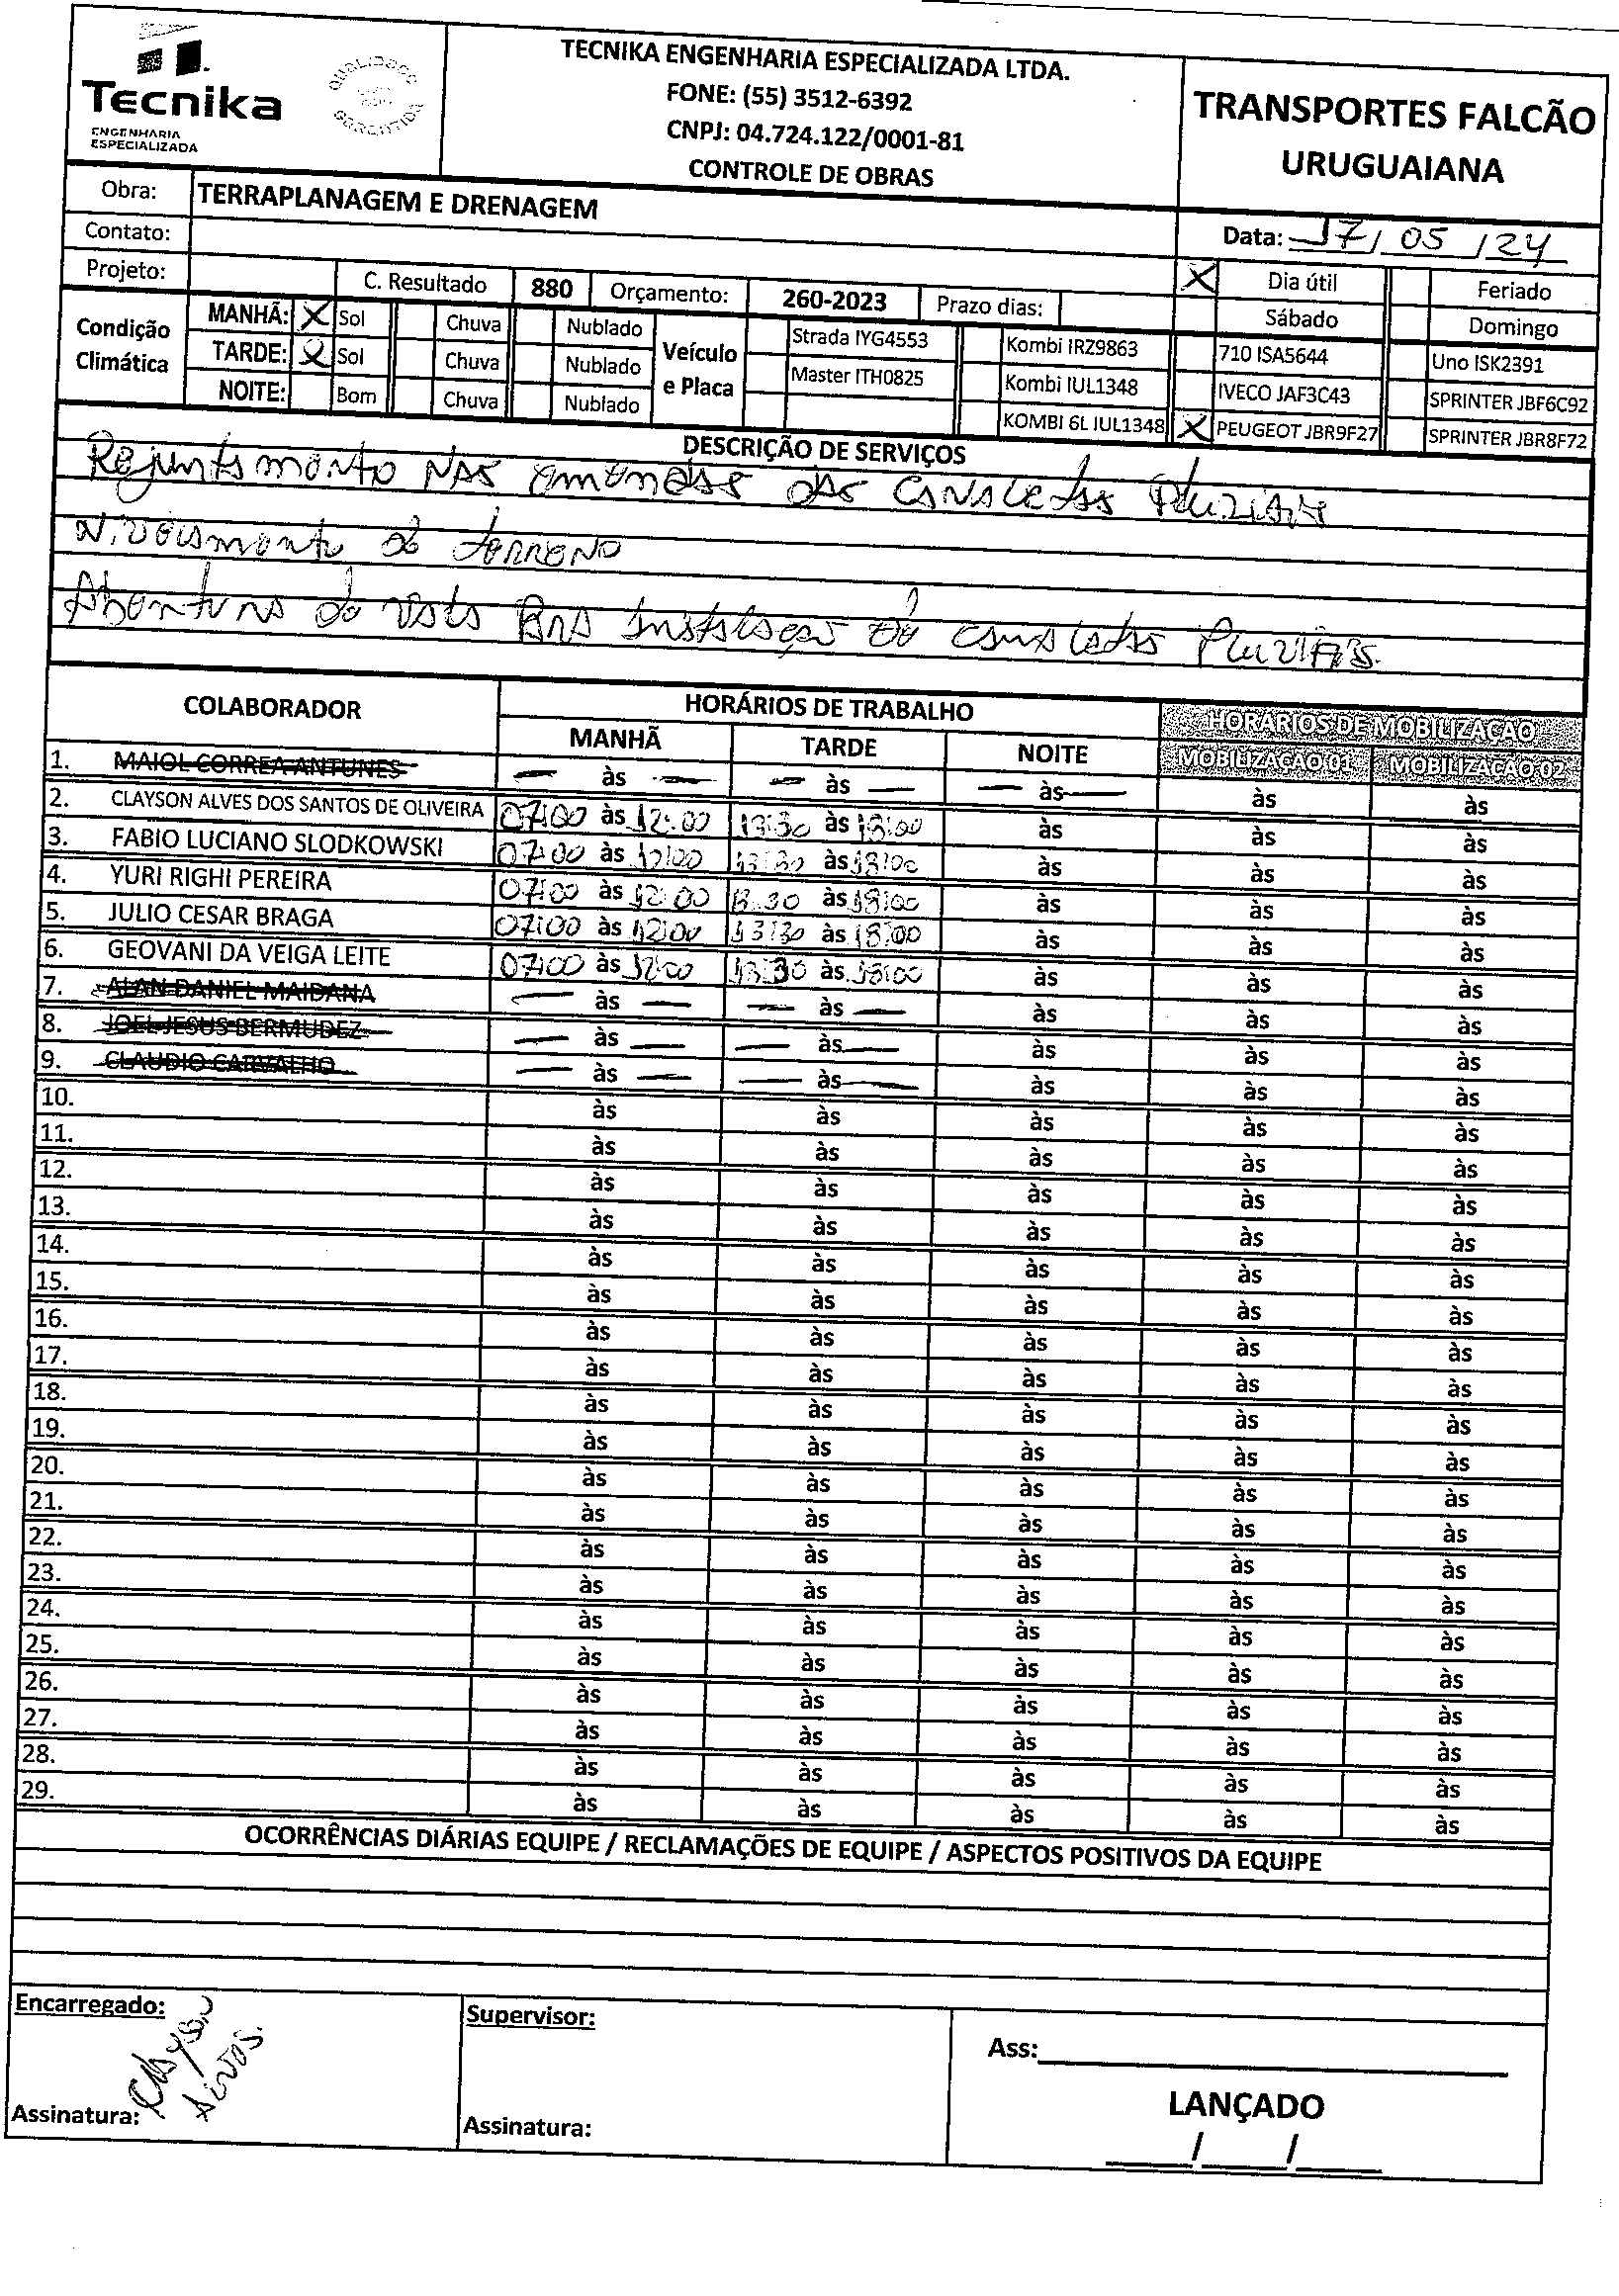 Tecnika
ENGENHARIA
ESPECIALIZADA
QUALIDADE
GARANTIDA
TECNIKA ENGENHARIA ESPECIALIZADA LTDA.
FONE: (55) 3512-6392
CNPJ: 04.724.122/0001-81
CONTROLE DE OBRAS
TRANSPORTES FALCÃO
URUGUAIANA
Obra: TERRAPLANAGEM E DRENAGEM
Contato:
Data: 17/05/24
Projeto: C. Resultado 880 Orçamento: 260-2023 Prazo dias: X Dia útil Feriado
Sábado Domingo
Condição Climática
MANHÃ: X Sol Chuva Nublado
TARDE: X Sol Chuva Nublado
NOITE: Bom Chuva Nublado
Veículo e Placa
Strada IYG4553 Kombi IRZ9863 710 ISA5644 Uno ISK2391
Master ITH0825 Kombi IUL1348 IVECO JAF3C43 SPRINTER JBF6C92
KOMBI 6L IUL1348 X PEUGEOT JBR9F27 SPRINTER JBR8F72
DESCRIÇÃO DE SERVIÇOS
Rejuntamento nas emendas das canaletas Pluviais
Nivelamento do terreno
Abertura de vala para instalação de canaletas Pluviais.
COLABORADOR HORÁRIOS DE TRABALHO HORÁRIOS DE MOBILIZACAO
MANHÃ TARDE NOITE MOBILIZACAO 01 MOBILIZACAO 02
1. MAIOL CORREA ANTUNES — às — — às — — às — às às
2. CLAYSON ALVES DOS SANTOS DE OLIVEIRA 07:00 às 12:00 13:30 às 18:00 às às às
3. FABIO LUCIANO SLODKOWSKI 07:00 às 12:00 13:30 às 18:00 às às às
4. YURI RIGHI PEREIRA 07:00 às 12:00 13:30 às 18:00 às às às
5. JULIO CESAR BRAGA 07:00 às 12:00 13:30 às 18:00 às às às
6. GEOVANI DA VEIGA LEITE 07:00 às 12:00 13:30 às 18:00 às às às
7. ALAN DANIEL MAIDANA — às — — às — às às às
8. JOEL JESUS BERMUDEZ — às — — às — às às às
9. CLAUDIO CARVALHO — às — — às — às às às
10. às às às às às
11. às às às às às
12. às às às às às
13. às às às às às
14. às às às às às
15. às às às às às
16. às às às às às
17. às às às às às
18. às às às às às
19. às às às às às
20. às às às às às
21. às às às às às
22. às às às às às
23. às às às às às
24. às às às às às
25. às às às às às
26. às às às às às
27. às às às às às
28. às às às às às
29. às às às às às
OCORRÊNCIAS DIÁRIAS EQUIPE / RECLAMAÇÕES DE EQUIPE / ASPECTOS POSITIVOS DA EQUIPE
Encarregado: Supervisor:
Ass:
Clayson
Alves
LANÇADO
Assinatura: Assinatura:
/ /